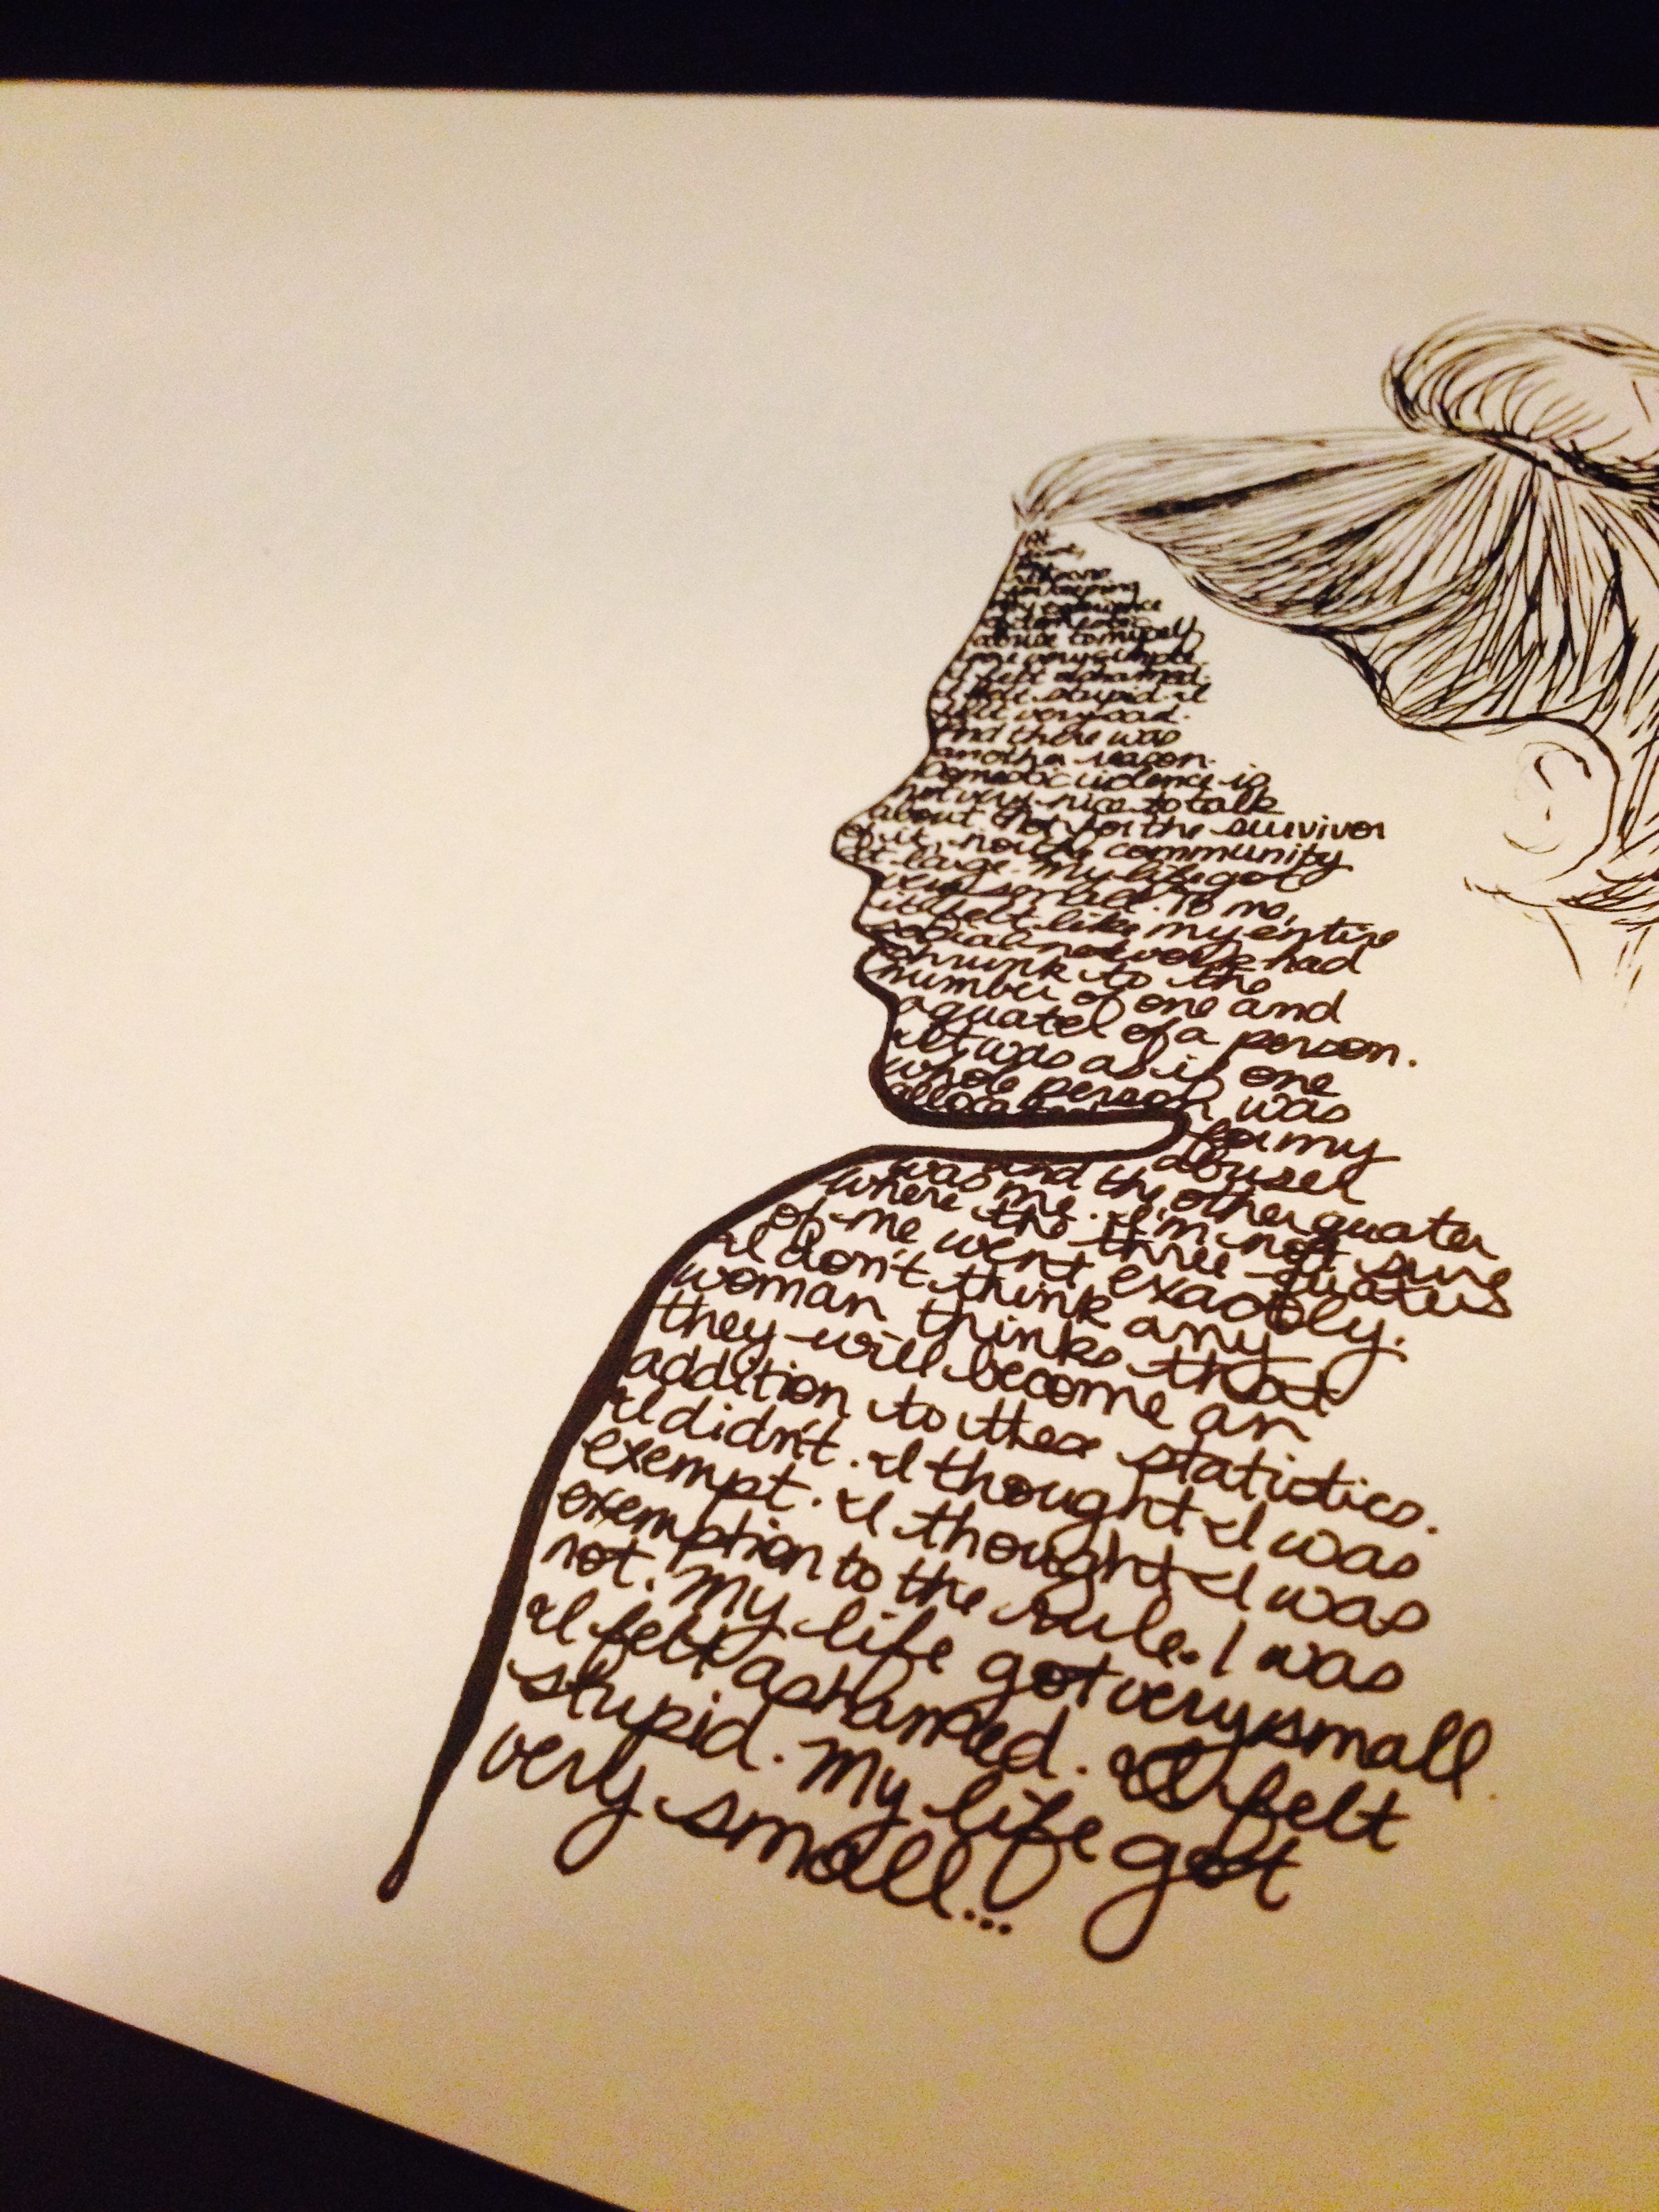 At
first,
my reasons
for keeping
my experience
of domestic
abuse to myself
were very simple.
I felt ashamed.
I felt stupid. I
felt very sad.
And there was
another reason.
Domestic violence is
not very nice to talk
about. Not for the survivor
of it, nor the community
at large. My life got
very small. To me,
it felt like my entire
social network had
shrunk to the
number of one and
a quater of a person.
It was as if one
whole person was
allocated for my
abuser
and the other quater
was me. I'm not sure
where the three quaters
of me went exactly.
I don't think any
woman thinks that
they will become an
addition to these statistics.
I didn't. I thought I was
exempt. I thought I was
exemption to the rule. I was
not. My life got very small.
I felt ashamed. I felt
stupid. My life got
very small...